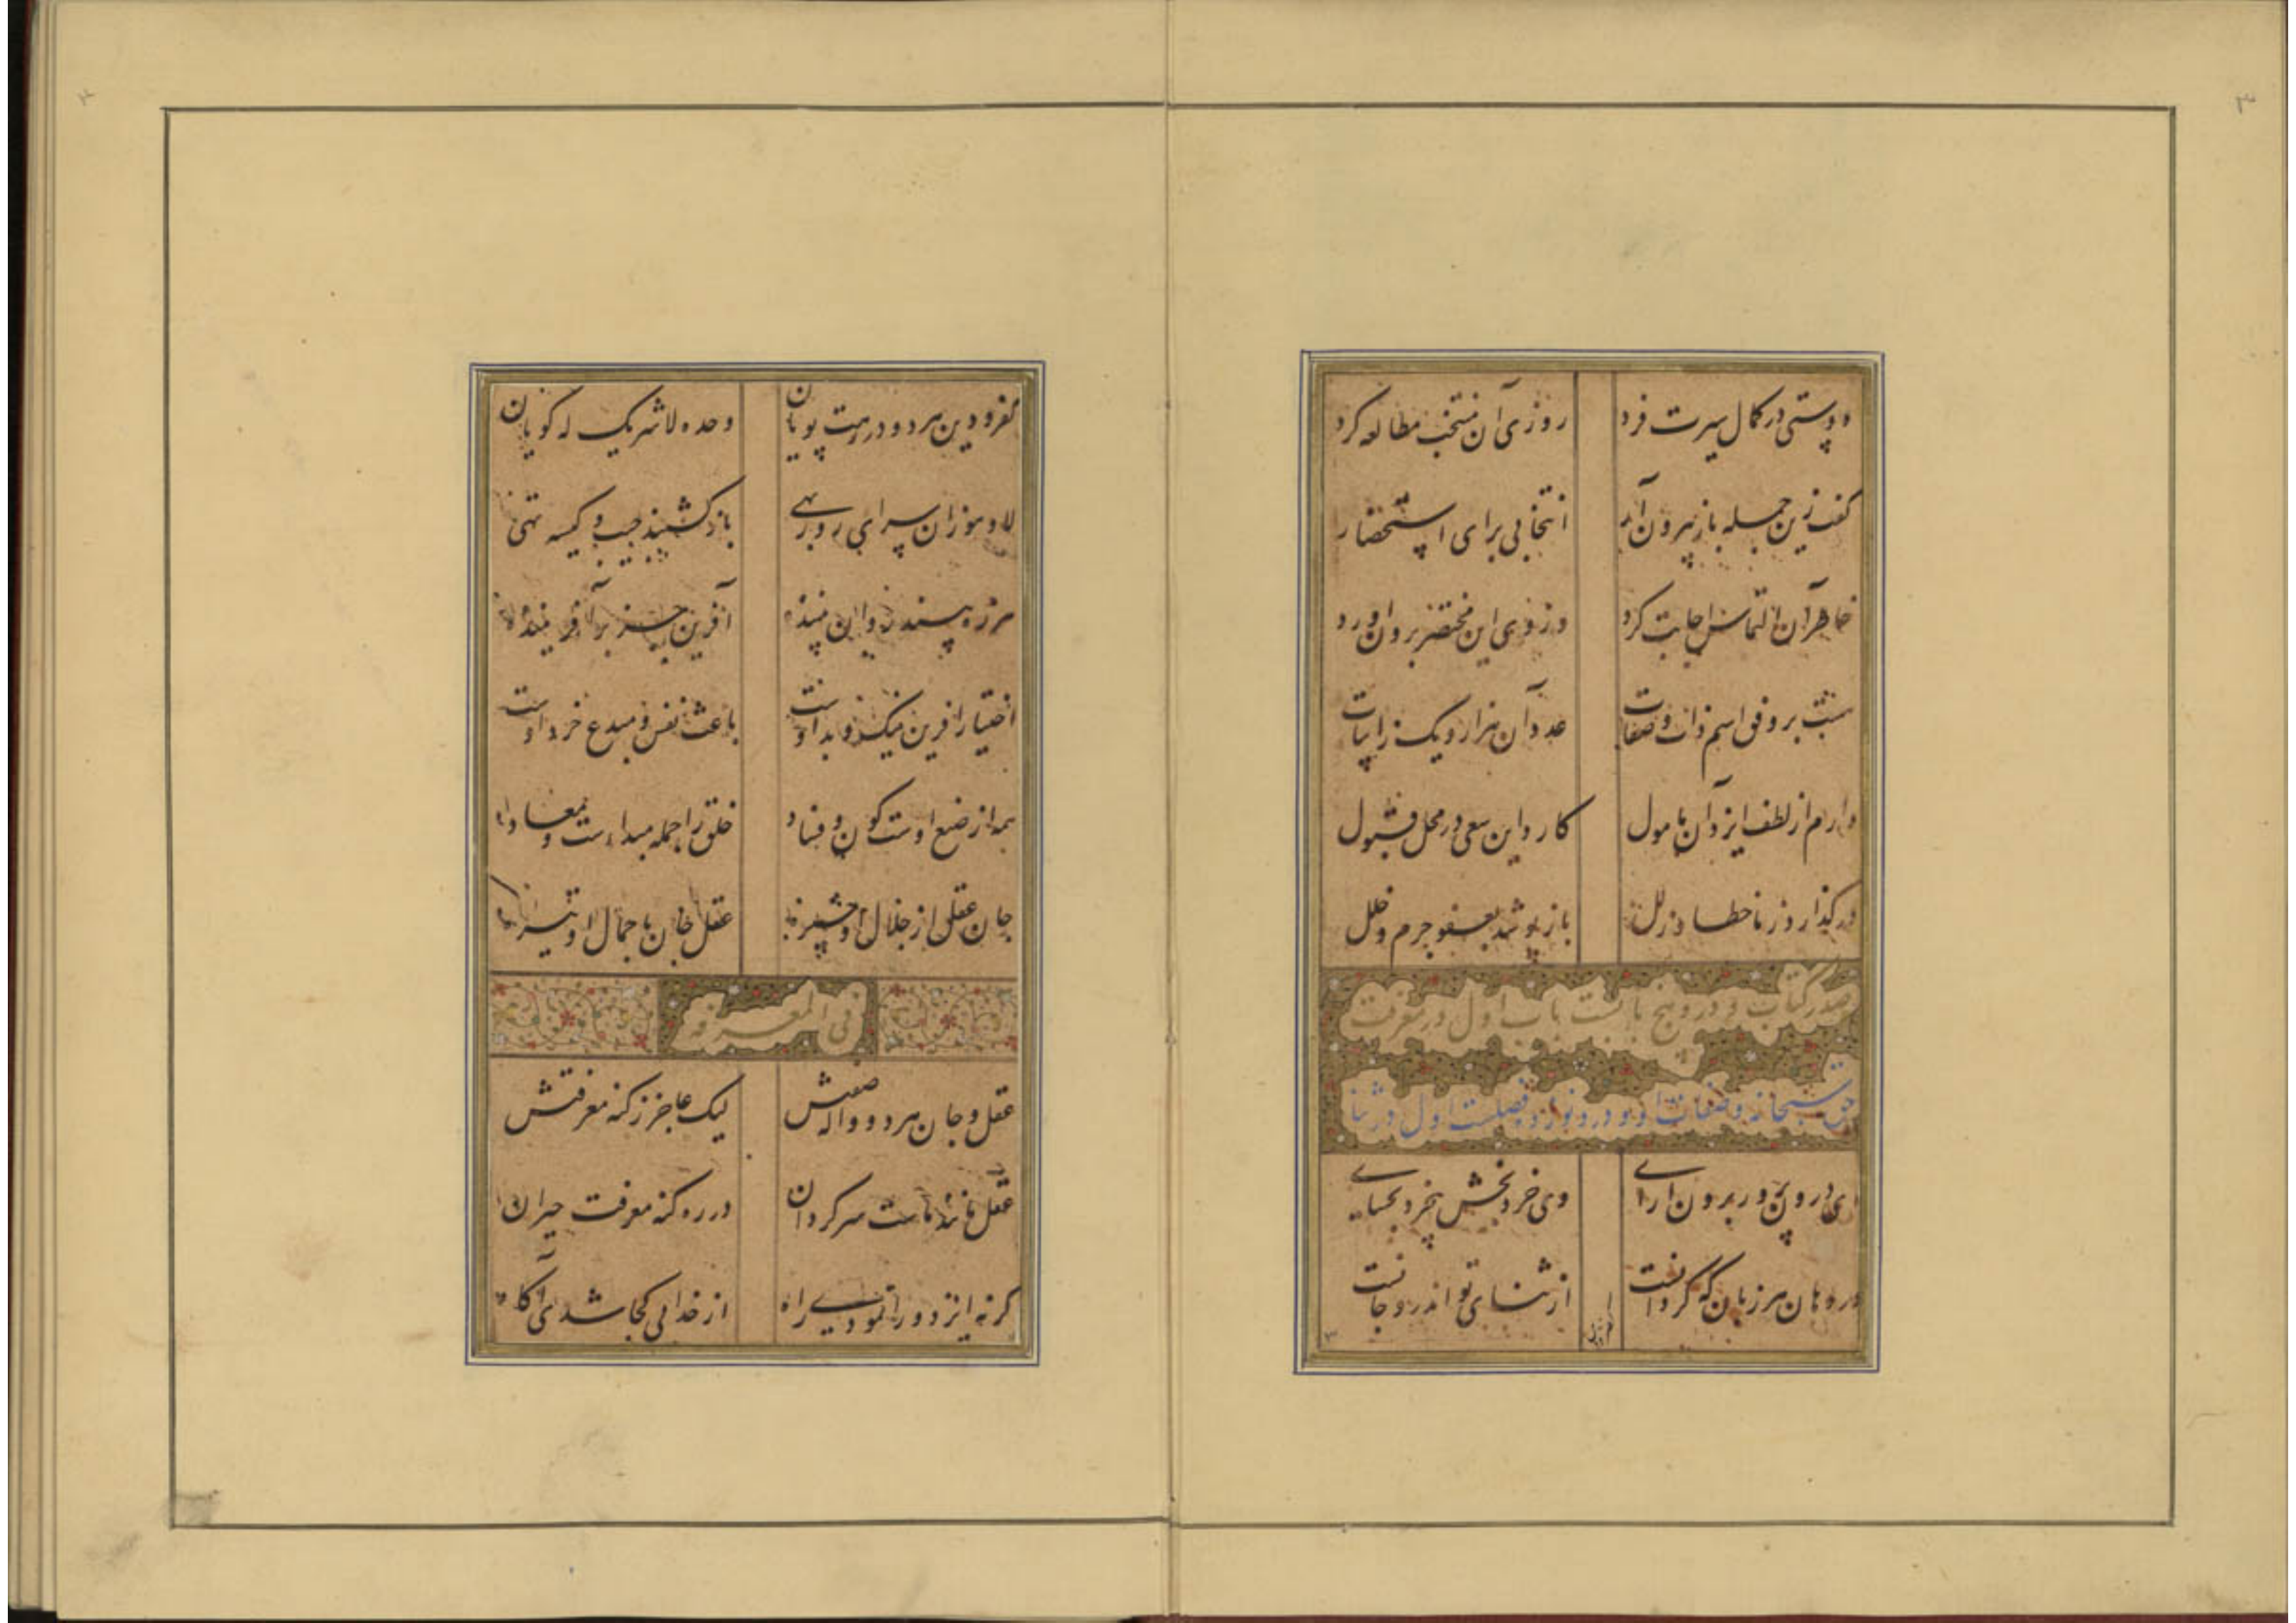 دوستی در کمال سیرت فرد روزی آن منتخب مطالعه کرد
گفت زین جمله باز بیرون آر انتخابی برای استحضار
خاطر آن التماس اجابت کرد وز وی این مختصر برون آورد
هست بر وفق اسم ذات و صفات عدد آن هزار و یک ز ابیات
دارم از لطف ایزد آن مامول کارد این سعی در محل قبول
درگذارد ز ما خطا و زلل باز پوشد بعفو جرم و خلل
صدر کتاب و درو پنج بابست باب اول در معرفت
حق سبحانه و صفات او و درو نوزده فصلست اول در ثنا
ای درون پرور برون آرای وی خرد بخش بیخرد بخشای
در دهان هر زبان که گردانست از ثنای تو اندرو جانست
کفر و دین هر دو در رهت پویان وحده لا شریک له گویان
لا و هو زان سرای روزبهی باز گشتند جیب و کیسه تهی
آفرین جز بر آفریننده
اختیار آفرین نیک و بد اوست باعث نفس و مبدع خرد اوست
همه از صنع اوست کون و فساد خلق را جمله مبداء ست و معاد
فی المعرفه
عقل و جان هر دو واله صفتش لیک عاجز ز کنه معرفتش
عقل مانند ماست سرگردان در ره کنه معرفت حیران
گر نه ایزد ورا نمودی راه از خدایی کجا شدی آگاه